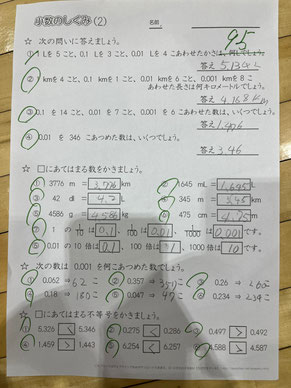 小数のしくみ (2)
名前
95
☆ 次の問いに答えましょう。
① 1Lを5こと、0.1Lを3こと、0.01Lを4こあわせたかさは、何Lでしょう。
答え
② 1kmを4こと、0.1kmを1こと、0.01kmを6こと、0.001kmを8こ
あわせた長さは何キロメートルでしょう。
答え 4.168km
③ 0.1を14こと、0.01を7こと、0.001を6こあわせた数は、いくつでしょう。
答え
④ 0.01を346こあつめた数は、いくつでしょう。
答え 3.46
☆ □にあてはまる数をかきましょう。
① 3776 m = 3.776 km ② 1645 mL = 1.645 L
③ 42 dL = 4.2 L ④ 345 m =
⑤ 4586 g = 4.586 kg ⑥ 475 cm = 4.75 m
⑦ 1の 1/10 は 0.1、1/100 は 0.01、1/1000 は 0.001 です。
⑧ 0.01の10倍は 0.1、100倍は 1、1000倍は 10 です。
☆ 次の数は 0.001を何こあつめた数でしょう。
① 0.062 ⇒ 62こ ② 0.357 ⇒ 357こ ③ 0.26 ⇒ 260
④ 0.18 ⇒ 180こ ⑤ 0.047 ⇒ 47こ ⑥ 0.234 ⇒ 234こ
☆ □にあてはまる不等号をかきましょう。
① 5.326 < 5.346 ② 0.275 < 0.286 ③ 0.497 > 0.492
④ 1.459 > 1.443 ⑤ 6.254 < 6.257 ⑥ 4.588 > 4.587